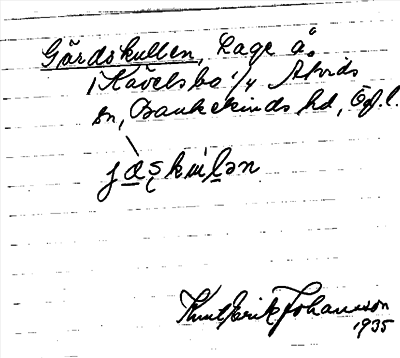 Gärdskullen, Lage å
i Kåvelsbo 1/4 Atvids
sn, Bankekinds hd, Ögl.
jæʂkulən
Knut Erik Johansson
1935